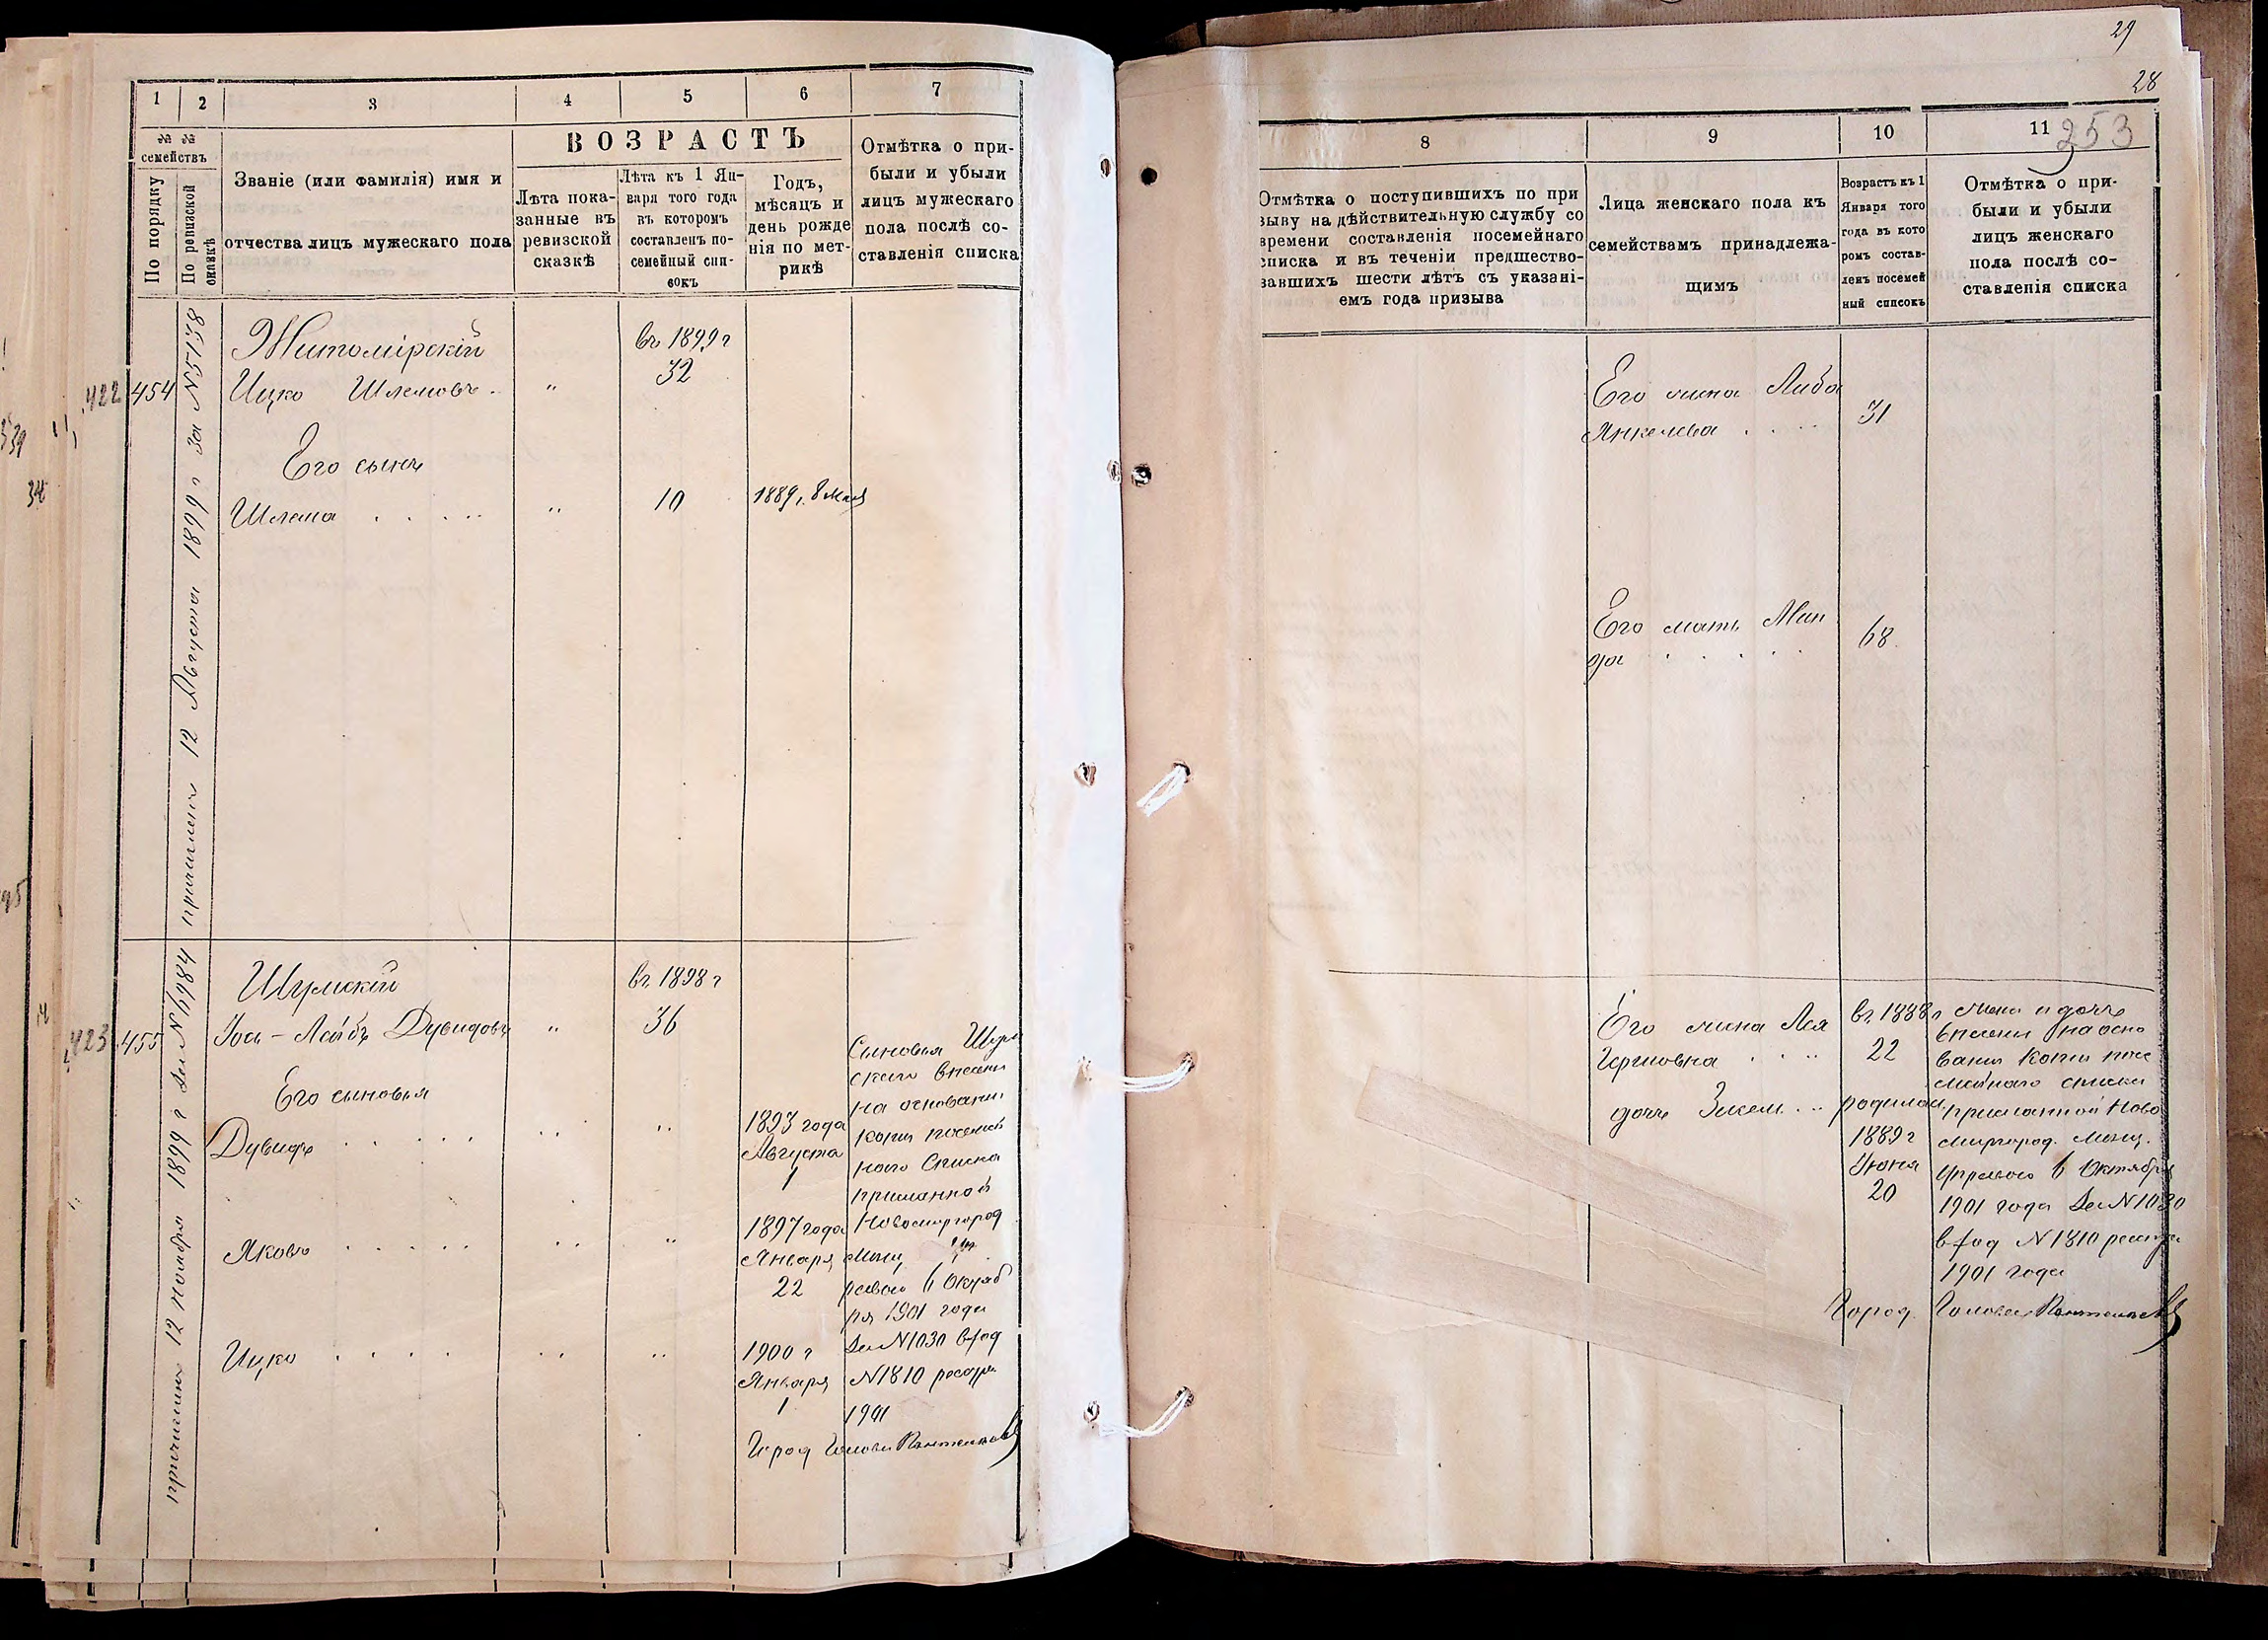 29
28
253
1 2 3 4 5 6 7
№№ семействъ
По порядку
По ревизской сказкѣ
Званіе (или фамилія) имя и
отчества лицъ мужескаго пола
ВОЗРАСТЪ
Лѣта пока-
занные въ
ревизской
сказкѣ
Лѣта къ 1 Ян-
варя того года
въ которомъ
составленъ по-
семейный спи-
сокъ
Годъ,
мѣсяцъ и
день рожде
нія по мет-
рикѣ
Отмѣтка о при-
были и убыли
лицъ мужескаго
пола послѣ со-
ставленія списка
422
454
причислен 12 Августа 1899 г за №5158
Житомірскій
въ 1899 г
Ицко Шлемовъ
"
32
Его сынъ
Шлема
"
10
1889 г. 8 Мая
423
455
причислен 12 Ноября 1899 г за №6984
Шумскій
въ 1898 г
Іось-Лейбъ Дувидовъ
"
36
Его сыновья
Дувидъ
1893 года
Августа
1
Яковъ
1897 года
Января
22
Ицко
1900 г
Января
1
Сыновья Шум
скаго внесены
на основании
копии посемей
наго Списка
присланной
Новомиргород
Мещ. Уп
равою 6 Октяб
ря 1901 года
за №1030 вход
№1810
1901
Город Голова
8 9 10 11
Отмѣтка о поступившихъ по при
зыву на дѣйствительную службу со
времени составленія посемейнаго
списка и въ теченіи предшество-
вавшихъ шести лѣтъ съ указані-
емъ года призыва
Лица женскаго пола къ
семействамъ принадлежа-
щимъ
Возрастъ къ 1
Января того
года въ кото
ромъ состав-
ленъ посемей
ный списокъ
Отмѣтка о при-
были и убыли
лицъ женскаго
пола послѣ со-
ставленія списка
Его жена Либа
Янкелева
31
Его мать Мин
да
68
Его жена Лея
Гершовна
въ 1888 г
22
дочь
родилась
1889 г
Іюня
20
жена и дочь
внесены на осно
вании копии посе
мейнаго списка
присланной Ново
миргород. Мещ.
Управою 6 Октября
1901 года за №1030
вход №1810
1901 года
Город. Голова